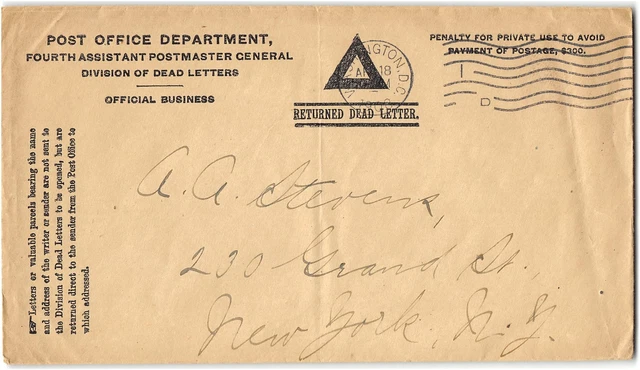 POST OFFICE DEPARTMENT,
FOURTH ASSISTANT POSTMASTER GENERAL
DIVISION OF DEAD LETTERS
OFFICIAL BUSINESS
PENALTY FOR PRIVATE USE TO AVOID
PAYMENT OF POSTAGE, $300.
18
D.C.
I
D
RETURNED DEAD LETTER.
☞ Letters or valuable parcels bearing the name
and address of the writer or sender are not sent to
the Division of Dead Letters to be opened, but are
returned direct to the sender from the Post Office to
which addressed.
A. A. Stevens,
230 Grand St.,
New York, N.Y.